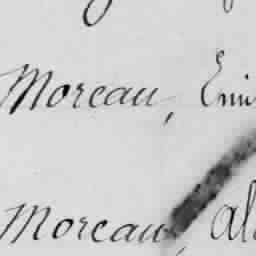 Moreau, Emi
Moreau, al